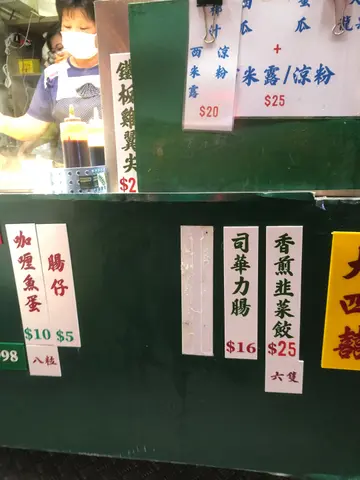 西米露
涼粉
$20
瓜
瓜
+
米露/涼粉
$25
鐵板雞翼尖
$2
咖喱魚蛋
$10
八粒
腸仔
$5
司華力腸
$16
香煎韭菜餃
$25
六隻
大四囍
98